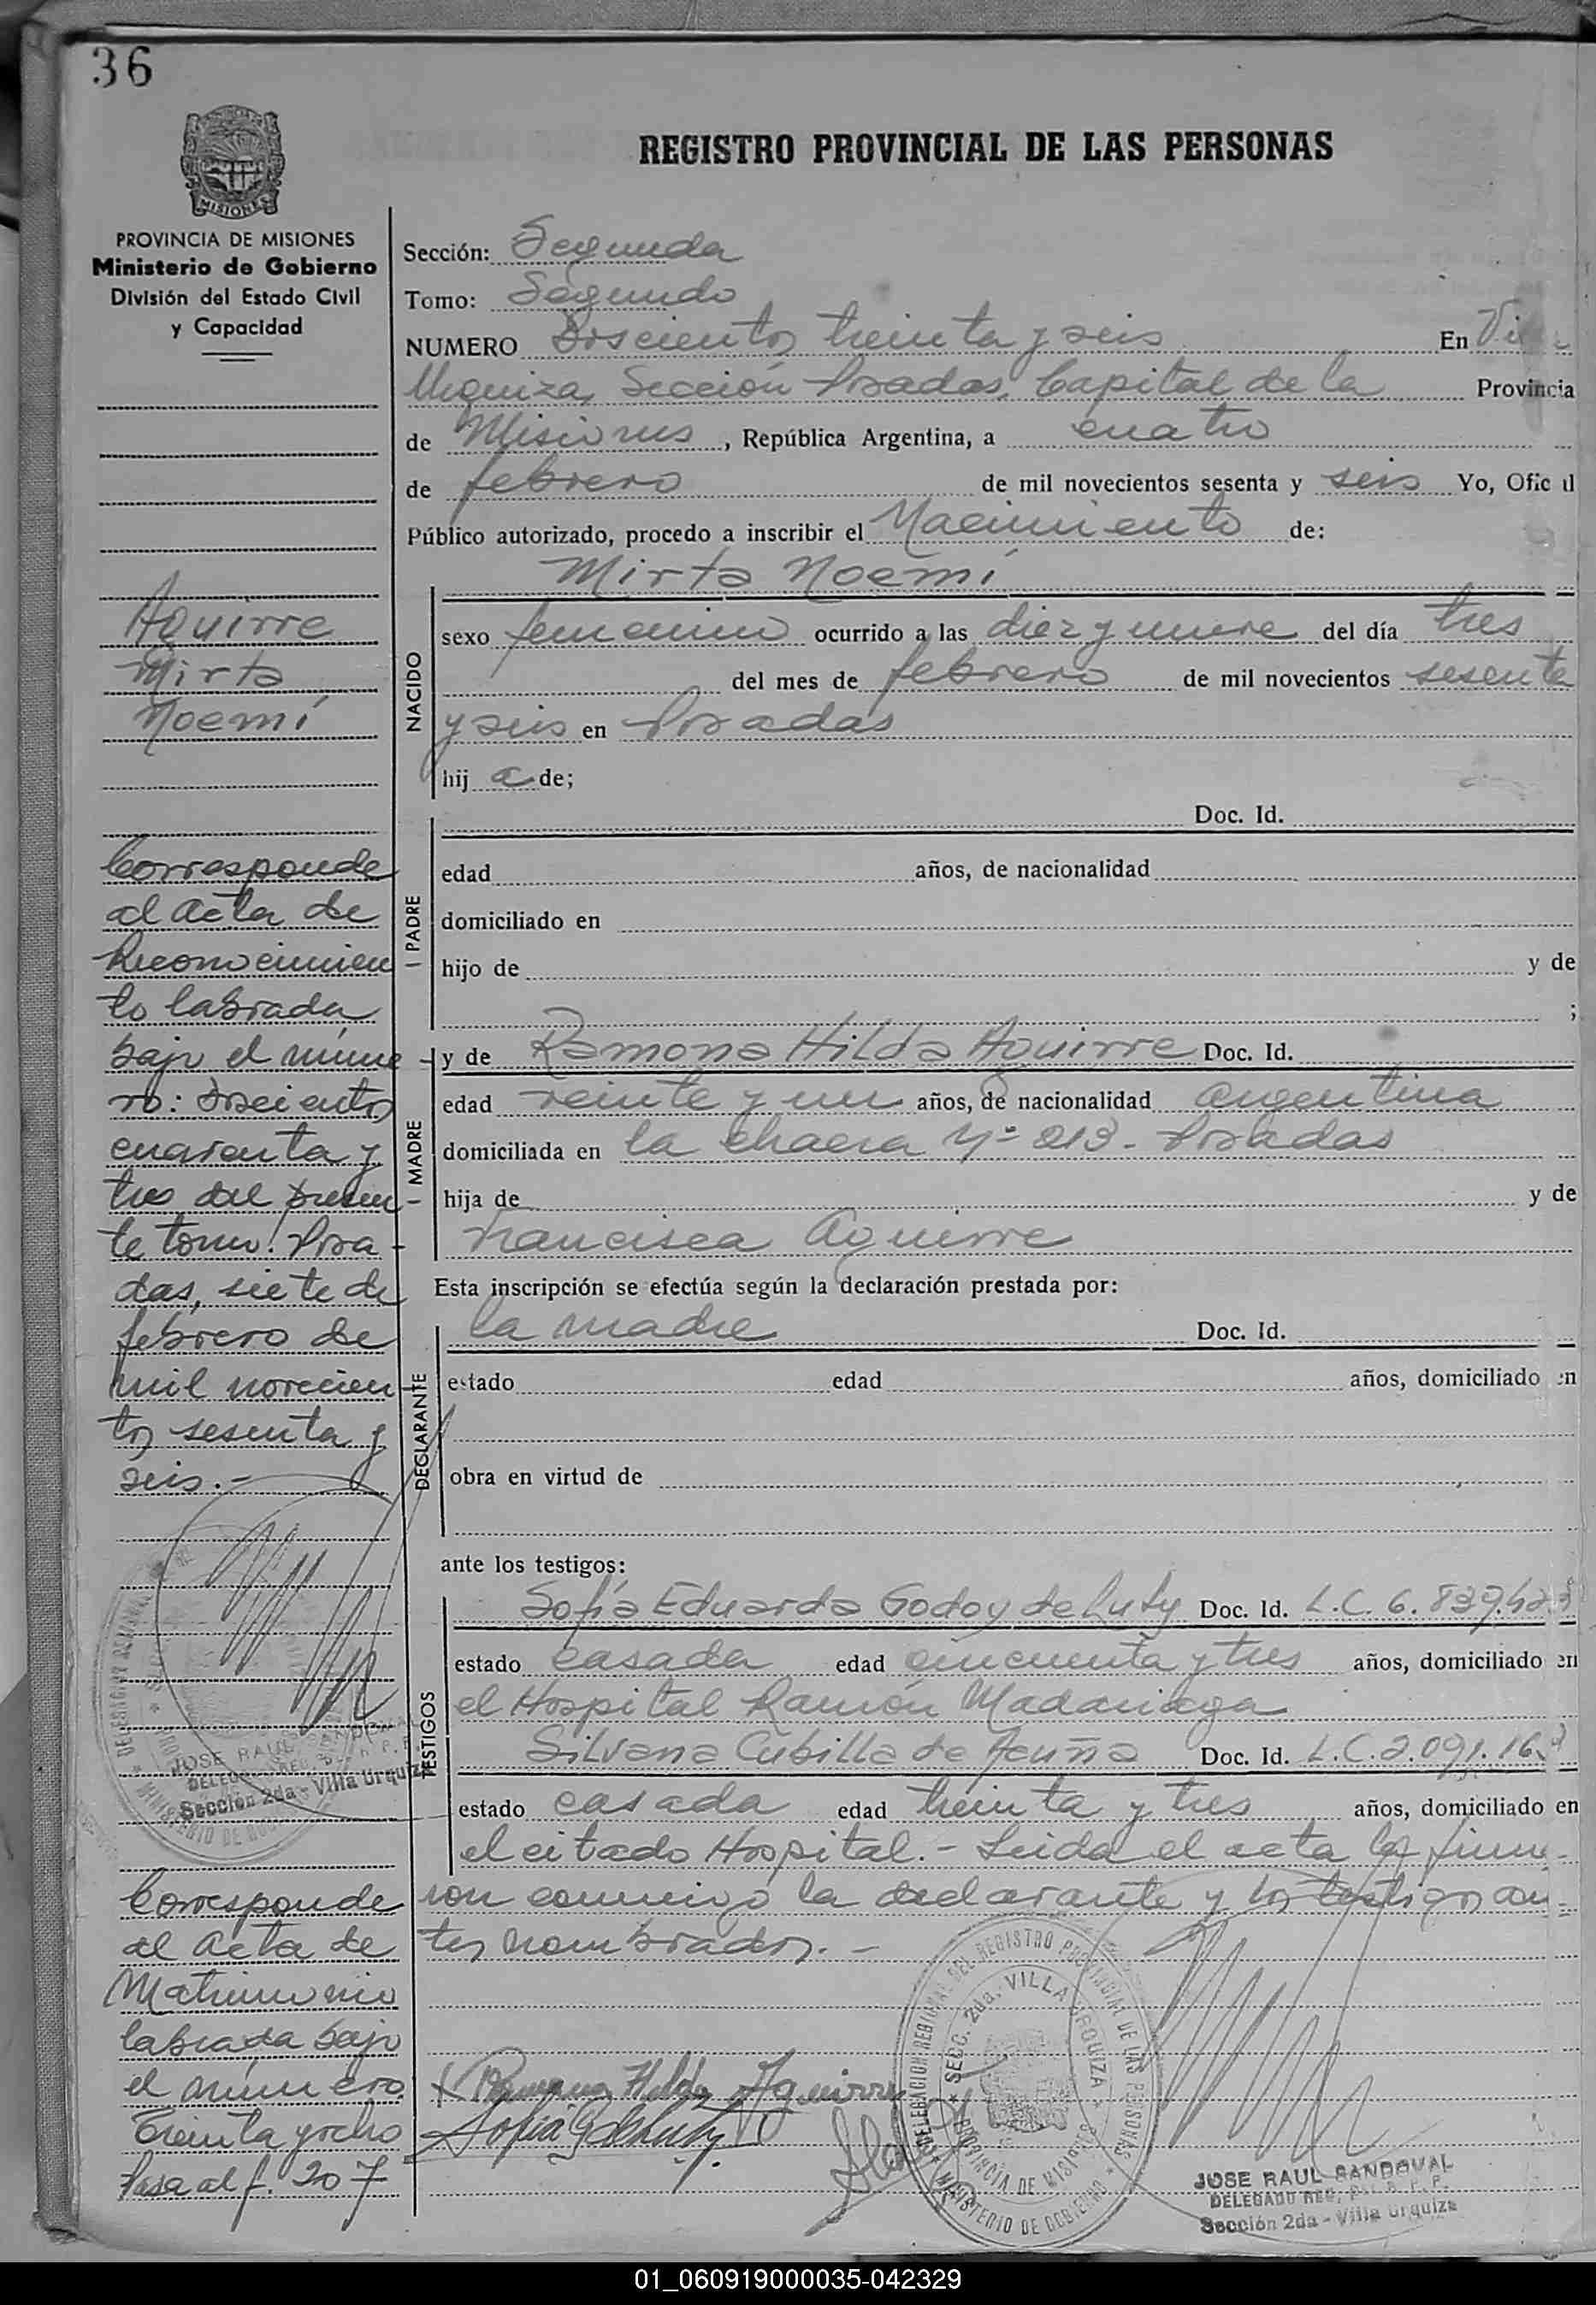 36
MISIONES
PROVINCIA DE MISIONES
Ministerio de Gobierno
División del Estado Civil
y Capacidad
REGISTRO PROVINCIAL DE LAS PERSONAS
Sección: Segunda
Tomo: Segundo
NUMERO Doscientos treinta y seis En
Urquiza, Sección Posadas, Capital de la Provincia
de Misiones, República Argentina, a cuatro
de febrero de mil novecientos sesenta y seis Yo, Oficial
Público autorizado, procedo a inscribir el Nacimiento de:
Mirta Noemí
NACIDO
sexo femenino ocurrido a las diez y nueve del día tres
del mes de febrero de mil novecientos sesenta
y seis en Posadas
hij a de;
Aguirre
Mirta
Noemí
PADRE
Doc. Id.
edad años, de nacionalidad
domiciliado en
hijo de y de
;
MADRE
y de Ramona Hilda Aguirre Doc. Id.
edad veinte y un años, de nacionalidad argentina
domiciliada en la chacra Nº 213 - Posadas
hija de y de
Francisca Aguirre
Esta inscripción se efectúa según la declaración prestada por:
DECLARANTE
la madre Doc. Id.
estado edad años, domiciliado en
obra en virtud de
ante los testigos:
TESTIGOS
Sofía Eduarda Godoy de Luty Doc. Id. L.C. 6.839.
estado casada edad cincuenta y tres años, domiciliado en
el Hospital Ramón Madariaga
Silvana Cubilla de Acuña Doc. Id. L.C. 2.091.
estado casada edad treinta y tres años, domiciliado en
el citado Hospital.- Leida el acta la firma-
ron conmigo la declarante y los testigos an-
tes nombrados.-
Corresponde
al acta de
Reconocimien
to labrada
bajo el núme-
ro: doscientos
cuarenta y
tres del presen-
te tomo. Posa-
das, siete de
febrero de
mil novecien-
tos sesenta y
seis.-
JOSE RAUL SANDOVAL
Sección 2da - Villa Urquiza
Corresponde
al acta de
Matrimonio
labrada bajo
el número
treinta y ocho
Pasa al f. 207
Ramona Hilda Aguirre
DELEGACION REGIONAL DEL REGISTRO PROVINCIAL DE LAS PERSONAS
SECC. 2da. VILLA URQUIZA
PROVINCIA DE MISIONES
MINISTERIO DE GOBIERNO
JOSE RAUL SANDOVAL
Sección 2da - Villa Urquiza
01_060919000035-042329